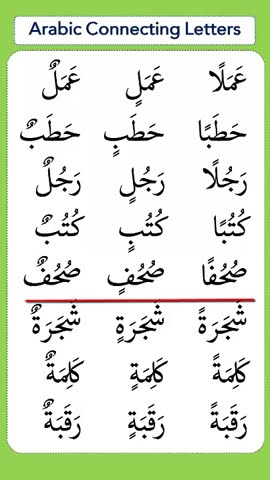 Arabic Connecting Letters
عَمَلًا عَمَلٍ عَمَلٌ
حَطَبًا حَطَبٍ حَطَبٌ
رَجُلًا رَجُلٍ رَجُلٌ
كُتُبًا كُتُبٍ كُتُبٌ
صُحُفًا صُحُفٍ صُحُفٌ
شَجَرَةً شَجَرَةٍ شَجَرَةٌ
كَلِمَةً كَلِمَةٍ كَلِمَةٌ
رَقَبَةً رَقَبَةٍ رَقَبَةٌ